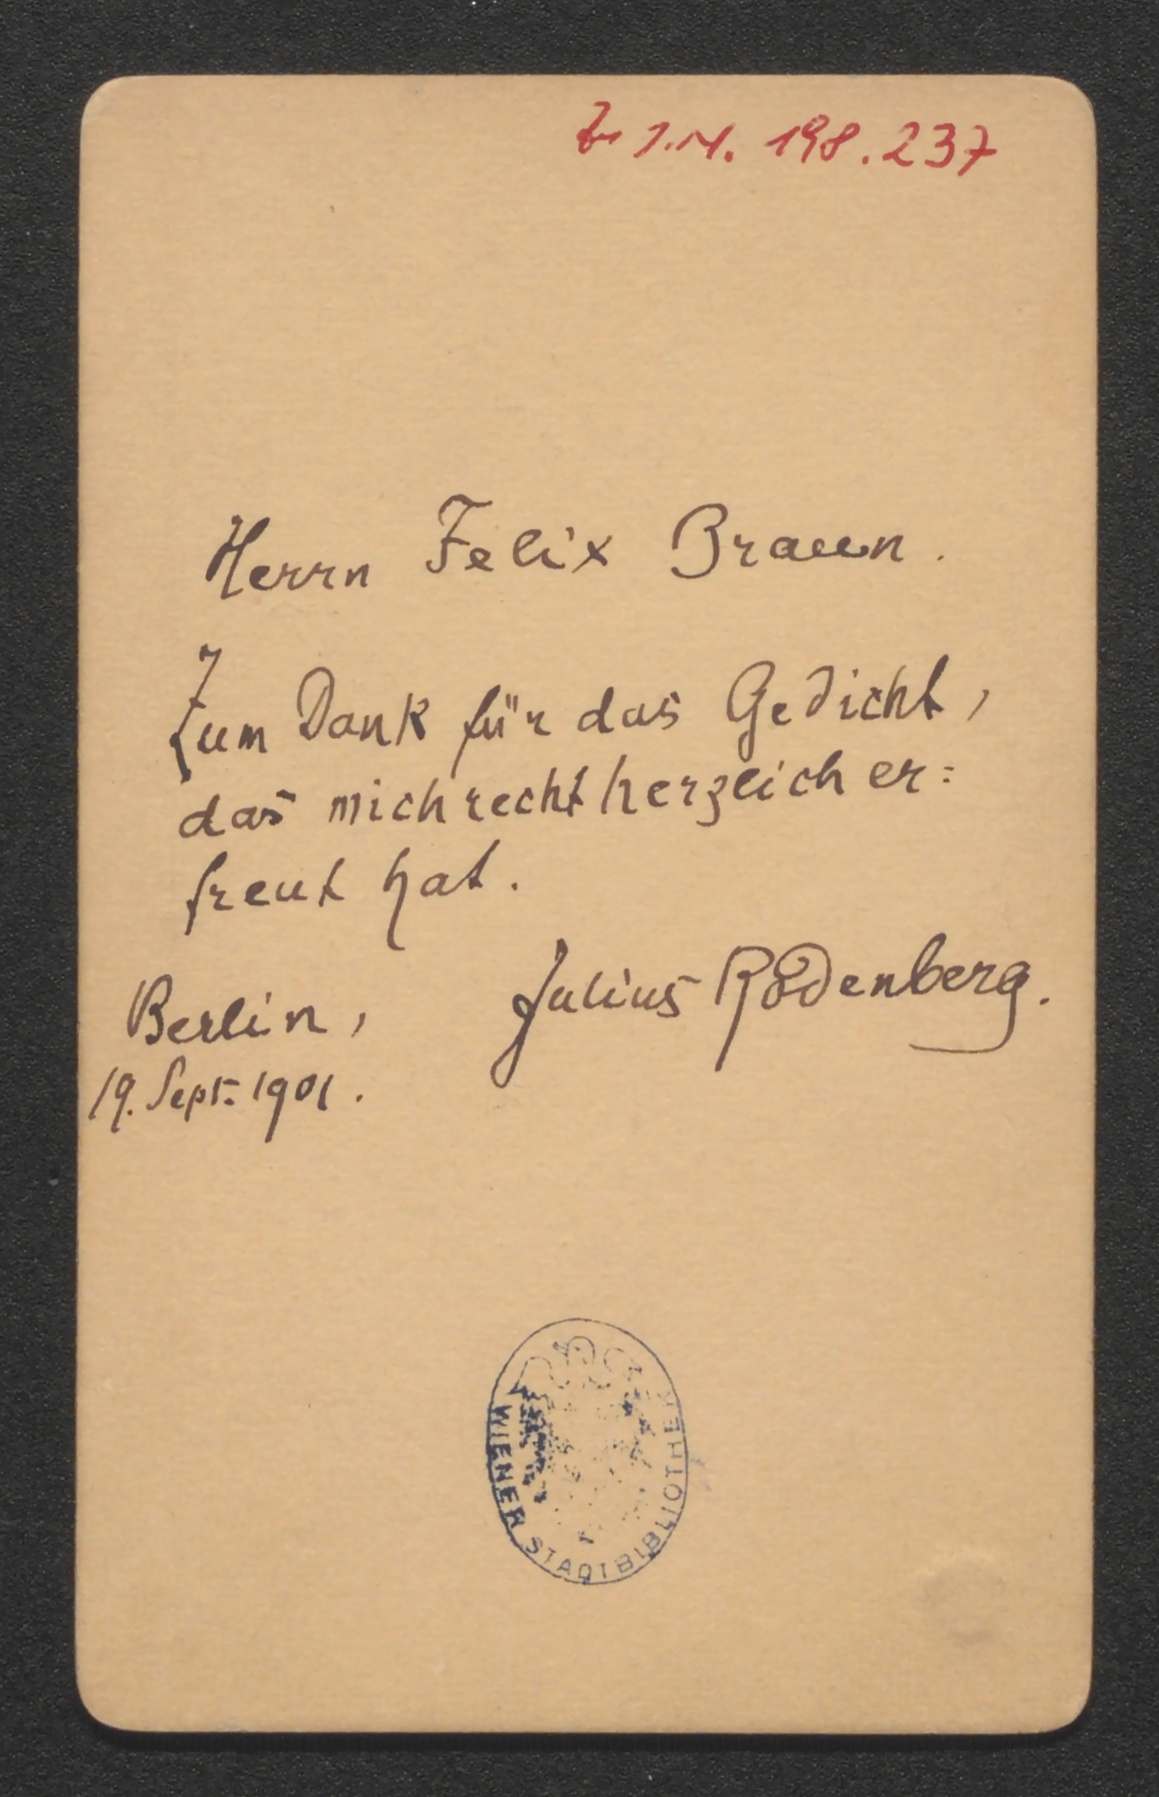 Zu I.N. 198.237
Herrn Felix Braun.
Zum Dank für das Gedicht,
das mich recht herzlich er=
freut hat.
Julius Rodenberg.
Berlin,
19. Sept. 1901.
WIENER STADTBIBLIOTHEK